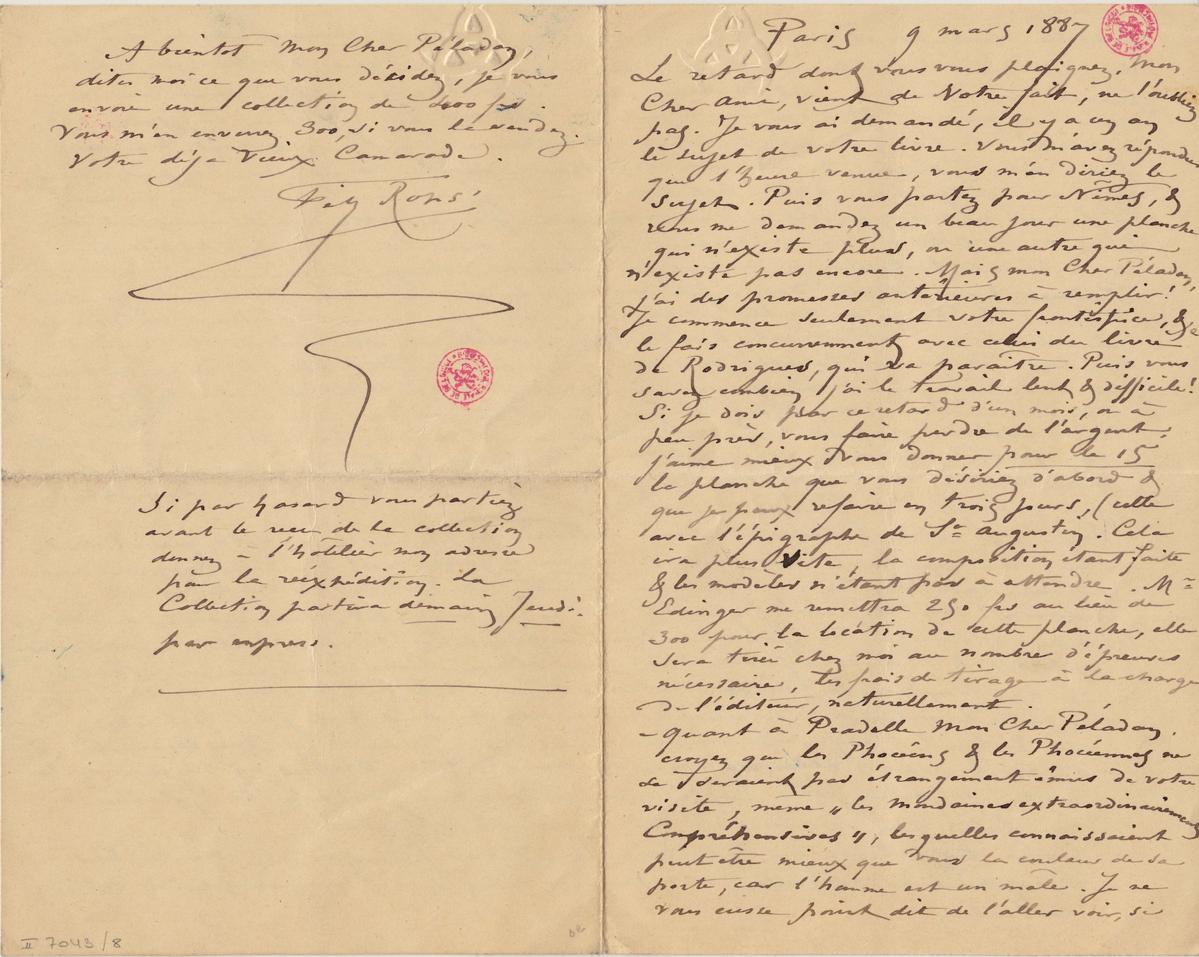 Paris 9 mars 1887
Le retard dont vous vous plaignez, mon
Cher ami, vient de Votre fait, ne l'oubliez
pas. Je vous ai demandé, il y a un an
le sujet de votre livre. Vous m'avez répondu
que l'heure venue, vous m'en diriez le
sujet. Puis vous partez pour Nîmes, &
vous me demandez un beau jour une planche
qui n'existe plus, ou une autre qui
n'existe pas encore. Mais mon Cher Péladan,
j'ai des promesses antérieures à remplir!
Je commence seulement votre frontispice, & je
le fais concurremment avec celui du livre
de Rodrigues, qui va paraître. Puis vous
savez combien j'ai le travail lent & difficile!
Si je dois par ce retard d'un mois, ou à
peu près, vous faire perdre de l'argent,
j'aime mieux vous donner pour le 15
la planche que vous désiriez d'abord &
que je peux refaire en trois jours, (celle
avec l'épigraphe de St augustin. Cela
ira plus vite, la composition étant faite
& les modèles n'étant pas à attendre. Mr
Edinger me remettra 250 frs au lieu de
300 pour la location de cette planche, elle
sera tirée chez moi au nombre d'épreuves
nécessaire, les frais de tirage à la charge
de l'éditeur, naturellement.
- quant à Pradelle mon Cher Péladan,
croyez que les Phocéens & les Phocéennes ne
se seraient pas étrangement émus de votre
visite, même „les mondaines extraordinairement
Compréhensives", lesquelles connaissaient
peut être mieux que vous la couleur de sa
porte, car l'homme est un mâle. Je ne
vous eusse point dit de l'aller voir, si
A bientot mon Cher Péladan,
dites moi ce que vous décidez, je vous
envoie une collection de 400 frs.
Vous m'en enverrez 300, si vous la vendez.
Votre déja vieux Camarade.
Fély Rops
Si par hasard vous partiez
avant le reçu de la collection
donnez à l'hôtelier mon adresse
pour la réexpédition. La
Collection partira demain Jeudi
par express.
II 7043/8